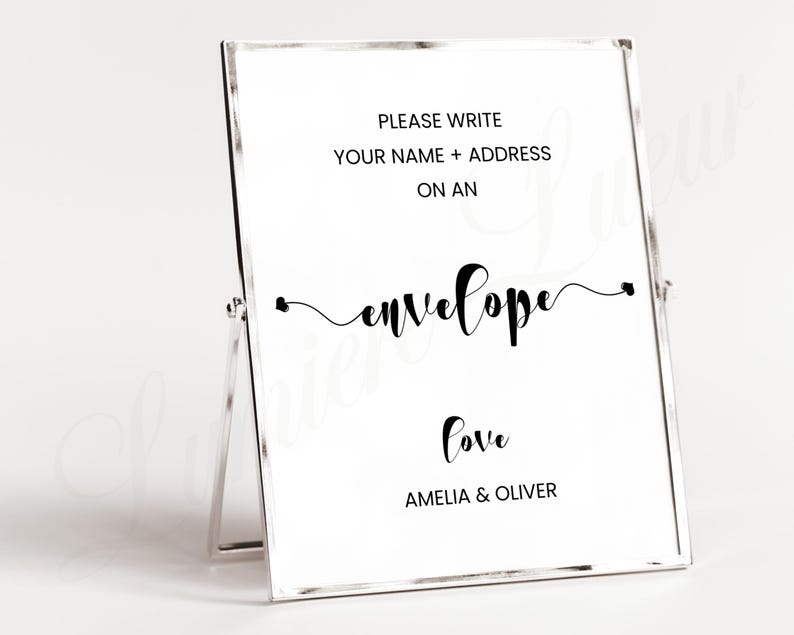 PLEASE WRITE
YOUR NAME + ADDRESS
ON AN
envelope
love
AMELIA & OLIVER
Lumiere Lueur